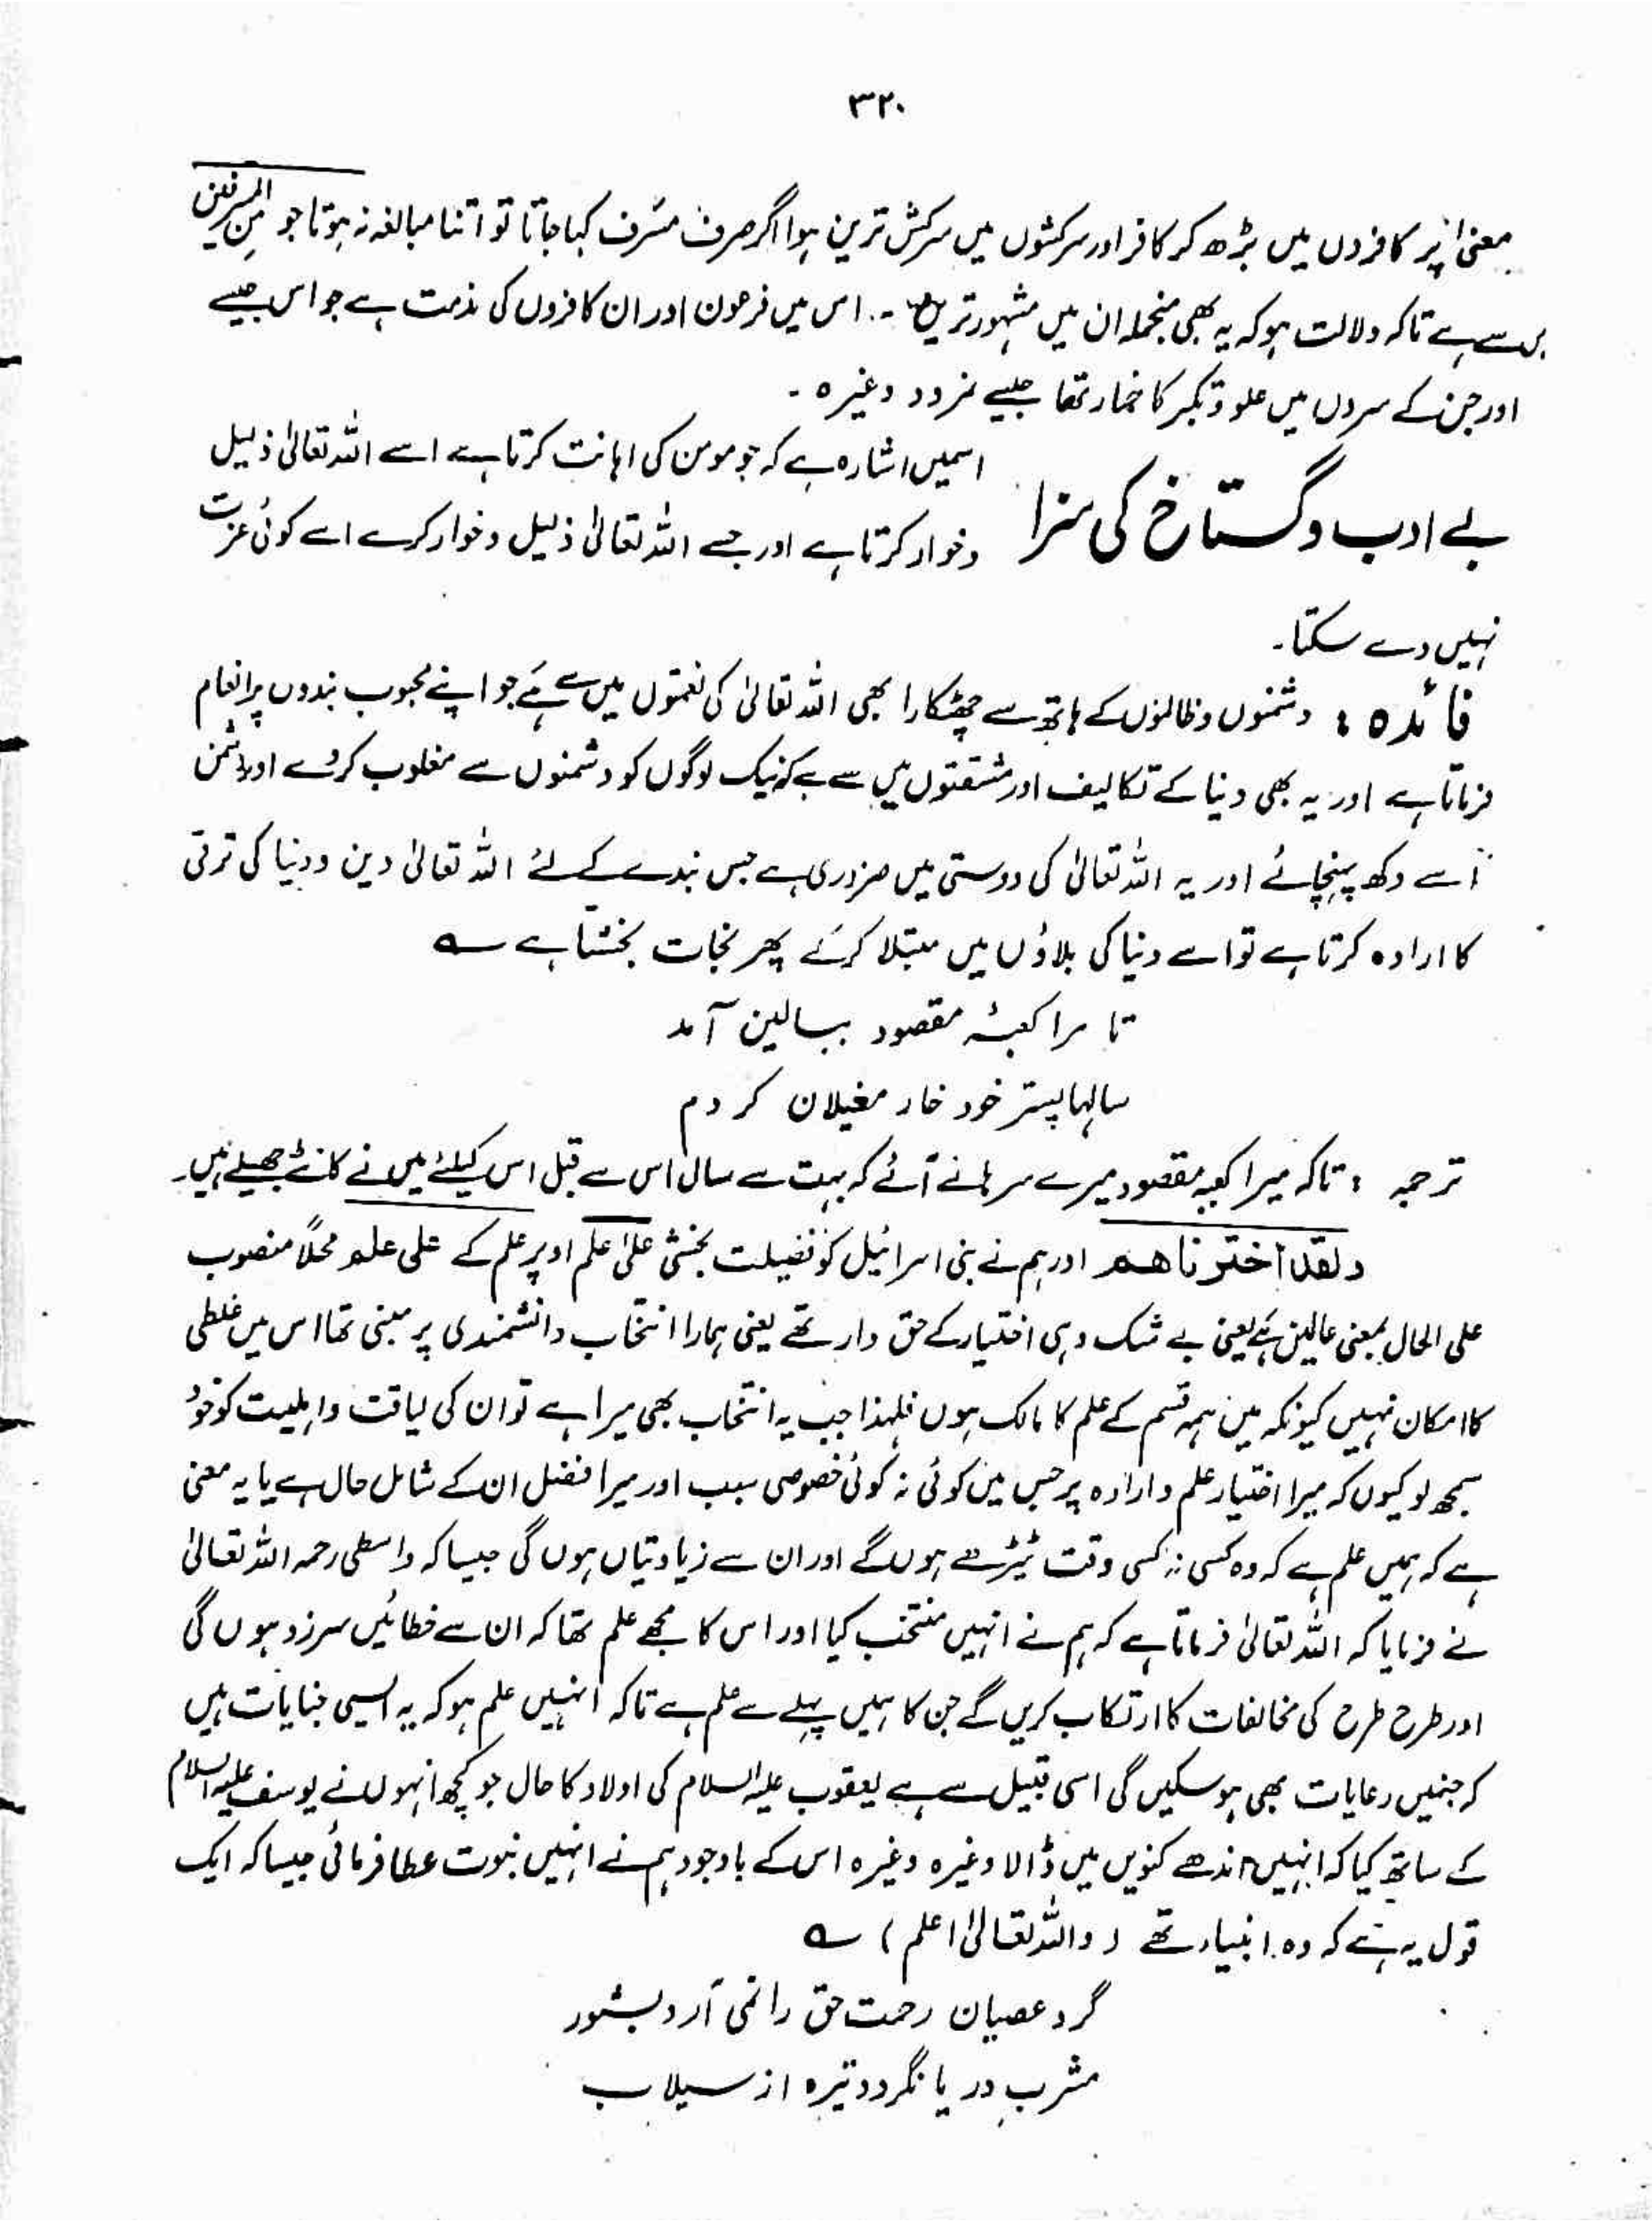 ۳۲۰
معنیٰ پر کافروں میں بڑھ کر کافر اور سرکشوں میں سرکش ترین ہوا اگر صرف مسرف کہا جاتا تو اتنا مبالغہ نہ ہوتا جو من المسرفین
میں سے ہے تاکہ دلالت ہو کہ یہ بھی منجملہ ان میں مشہور ترین ۔ اس میں فرعون اور ان کافروں کی مذمت ہے جو اس جیسے
اور جن کے سروں میں علو و تکبر کا خمار تھا جیسے نمرود وغیرہ ۔
بے ادب و گستاخ کی سزا
اسمیں اشارہ ہے کہ جو مومن کی اہانت کرتا ہے اسے اللہ تعالیٰ ذلیل
وخوار کرتا ہے اور جسے اللہ تعالیٰ ذلیل وخوار کرے اسے کوئی عزت
نہیں دے سکتا۔
فائدہ : دشمنوں و ظالموں کے ہاتھ سے چھٹکارا بھی اللہ تعالیٰ کی نعمتوں میں سے ہے جو اپنے محبوب بندوں پر انعام
فرماتا ہے اور یہ بھی دنیا کے تکالیف اور مشقتوں میں سے ہے کہ نیک لوگوں کو دشمنوں سے مغلوب کر دے اور دشمن
اسے دکھ پہنچائے اور یہ اللہ تعالیٰ کی دوستی میں ضروری ہے جس بندے کے لئے اللہ تعالیٰ دین و دنیا کی ترقی
کا ارادہ کرتا ہے تو اسے دنیا کی بلاؤں میں مبتلا کر کے پھر نجات بخشتا ہے ؎
تا مرا کعبۂ مقصود ببالین آمد
سالہا پستر خود خار مغیلان کردم
ترجمہ : تاکہ میرا کعبہ مقصود میرے سرہانے آئے کہ بہت سے سال اس سے قبل اس کیلئے میں نے کانٹے جھیلے ہیں۔
ولقد اخترناھم اور ہم نے بنی اسرائیل کو فضیلت بخشی علیٰ علم اوپر علم کے علی علم محلاً منصوب
علی الحال بمعنی عالین ہے یعنی بے شک وہی اختیار کے حق دار تھے یعنی ہمارا انتخاب دانشمندی پر مبنی تھا اس میں غلطی
کا امکان نہیں کیونکہ میں ہمہ قسم کے علم کا مالک ہوں فلہذا جب یہ انتخاب بھی میرا ہے تو ان کی لیاقت واہلیت کو خود
سمجھ لو کیوں کہ میرا اختیار علم و ارادہ پر جس میں کوئی نہ کوئی خصوصی سبب اور میرا فضل ان کے شامل حال ہے یا یہ معنی
ہے کہ ہمیں علم ہے کہ وہ کسی نہ کسی وقت ٹیڑھے ہوں گے اور ان سے زیادتیاں ہوں گی جیسا کہ واسطی رحمہ اللہ تعالیٰ
نے فرمایا کہ اللہ تعالیٰ فرماتا ہے کہ ہم نے انہیں منتخب کیا اور اس کا مجھے علم تھا کہ ان سے خطائیں سرزد ہوں گی
اور طرح طرح کی مخالفات کا ارتکاب کریں گے جن کا ہمیں پہلے سے علم ہے تاکہ انہیں علم ہو کہ یہ ایسی جنایات ہیں
کہ جنہیں رعایات بھی ہو سکیں گی اسی قبیل سے ہے یعقوب علیہ السلام کی اولاد کا حال جو کچھ انہوں نے یوسف علیہ السلام
کے ساتھ کیا کہ انہیں اندھے کنویں میں ڈالا وغیرہ وغیرہ اس کے باوجود ہم نے انہیں نبوت عطا فرمائی جیسا کہ ایک
قول یہ ہے کہ وہ انبیاء تھے ( واللہ تعالیٰ اعلم ) ؎
گرد عصیان رحمت حق را نمی آرد بشور
مشرب دریا نگردد تیرہ از سیلاب